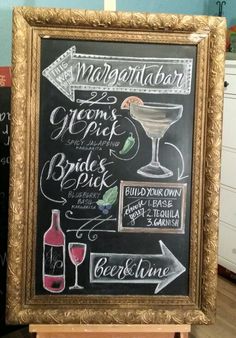 THIS WAY
Margarita bar
Groom's
Pick
SPICY JALAPENO
MARGARITA
Bride's
Pick
BLUEBERRY
BASIL
MARGARITA
BUILD YOUR OWN
choose
yours!
1. BASE
2. TEQUILA
3. GARNISH
Beer & Wine